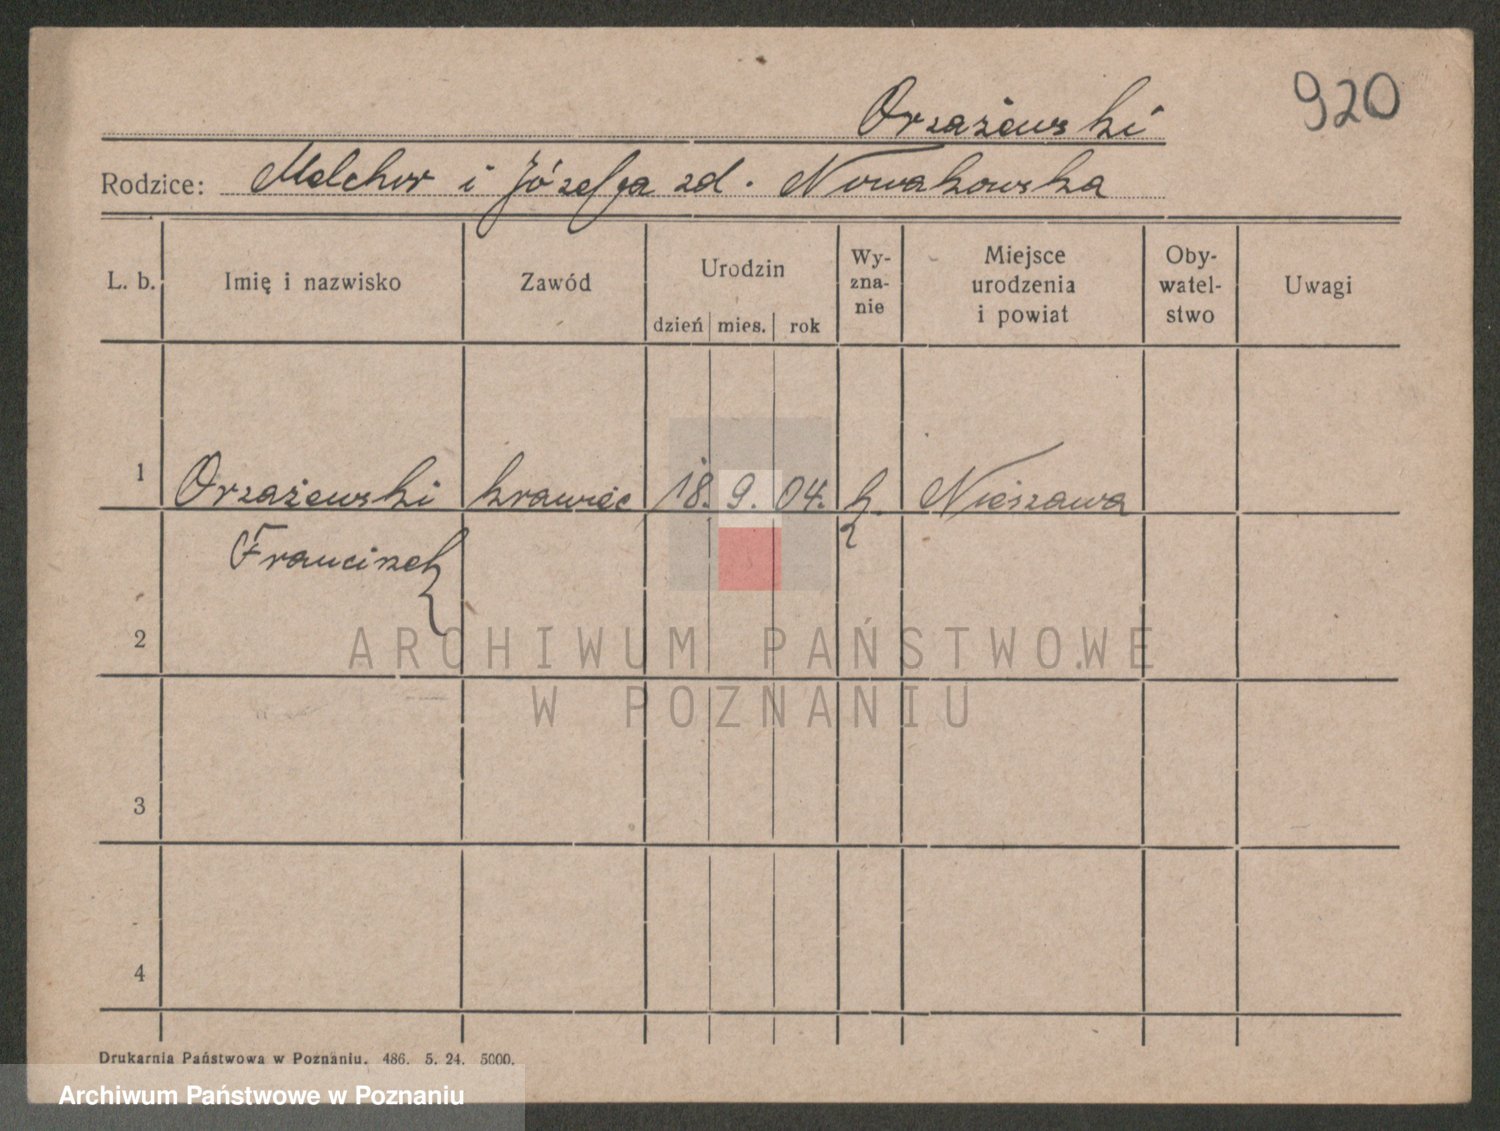 920
Orzażewski
Rodzice: Melchor i Józefa zd. Nowakowska
L. b.
Imię i nazwisko
Zawód
Urodzin
dzień mies. rok
Wy-
zna-
nie
Miejsce
urodzenia
i powiat
Oby-
watel-
stwo
Uwagi
1 Orzażewski krawiec 18. 9. 04. k. Nieszawa
Franciszek
2
3
4
ARCHIWUM PAŃSTWOWE
W POZNANIU
Drukarnia Państwowa w Poznaniu. 486. 5. 24. 5000.
Archiwum Państwowe w Poznaniu